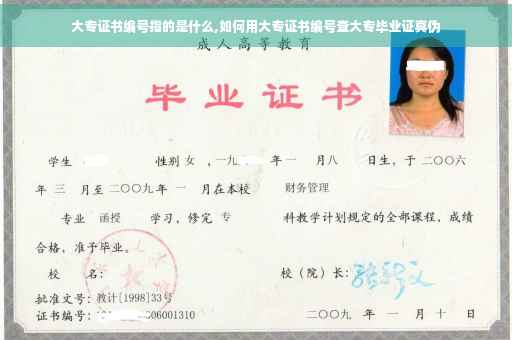 大专证书编号指的是什么,如何用大专证书编号查大专毕业证真伪
成人高等教育
毕业证书
学生 性别 女 ,一九 年 一 月 八 日生,于 二〇〇六
年 三 月至 二〇〇九 年 一 月在本校 财务管理
专业 函授 学习,修完 专 科教学计划规定的全部课程,成绩
合格,准予毕业。
校 名: 校(院)长:
批准文号:教计[1998]33号
证书编号: 06001310 二〇〇九 年 一 月 十 日